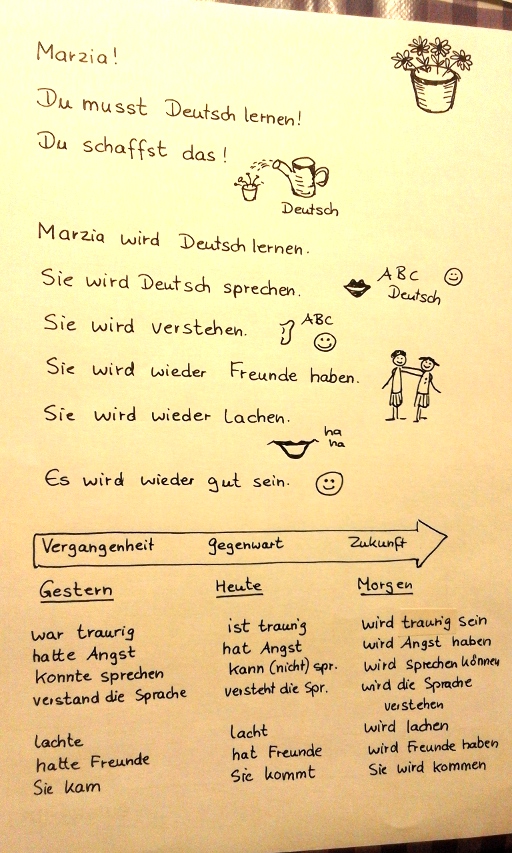 Marzia!
Du musst Deutsch lernen!
Du schaffst das!
Deutsch
Marzia wird Deutsch lernen.
Sie wird Deutsch sprechen.
ABC
Deutsch
Sie wird verstehen.
ABC
Sie wird wieder Freunde haben.
Sie wird wieder Lachen.
ha
ha
Es wird wieder gut sein.
Vergangenheit gegenwart Zukunft
Gestern Heute Morgen
war traurig ist traurig wird traurig sein
hatte Angst hat Angst wird Angst haben
konnte sprechen kann (nicht) spr. wird sprechen können
verstand die Sprache versteht die Spr. wird die Sprache
verstehen
lachte lacht wird lachen
hatte Freunde hat Freunde wird Freunde haben
Sie kam Sie kommt Sie wird kommen